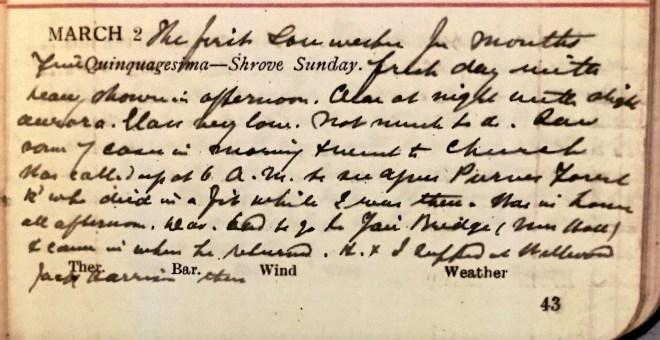 MARCH 2 The first Sou wester for months
Fine Quinquagesima—Shrove Sunday. fresh day with
heavy shower in afternoon. Clear at night with slight
aurora. Glass very low. Not much to do. Saw
some cases in morning & went to Church
Was called up at 6 A.M. to see Purves
who died in a fit while I was there. Was in house
all afternoon. had to go to Yair Bridge (Mrs
& came in when he returned. H. & I supped at Wellwood
Jack Harrison there
Ther. Bar. Wind Weather
43